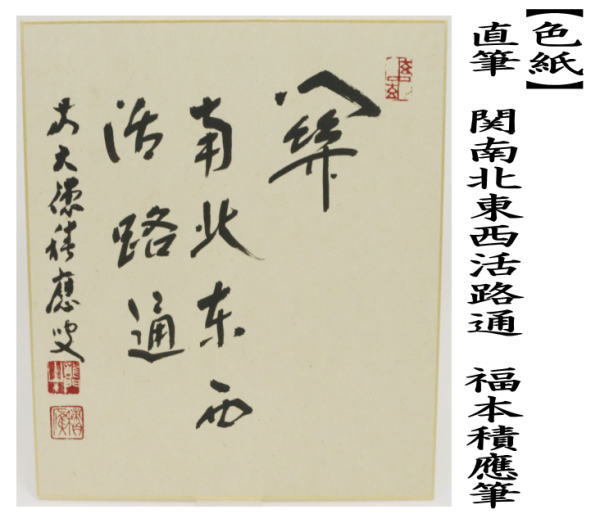 【色紙】
直筆 関南北東西活路通 福本積應筆
関
南北东西
活路通
前大徳積應叟